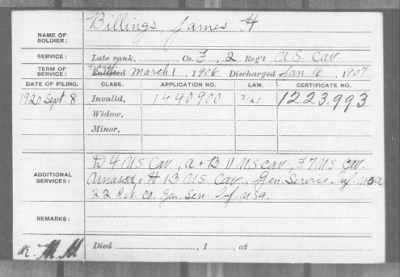 NAME OF SOLDIER: Billings, James H
SERVICE: Late rank, Co. F, 2 Reg't U.S. Cav.
TERM OF SERVICE: Enlisted March 1, 1906, Discharged Jan 16, 1907
DATE OF FILING. CLASS. APPLICATION NO. LAW. CERTIFICATE NO.
1920 Sept 8 Invalid, 1440900 1223993
Widow,
Minor,
ADDITIONAL SERVICES: D 4 US Cav, A + B 11 US Cav, F 7 US Cav.
H 13 US Cav, Gen. Service Inf. USA
22 Co. Gen. Ser. Inf. USA.
REMARKS:
Died , 1 , at